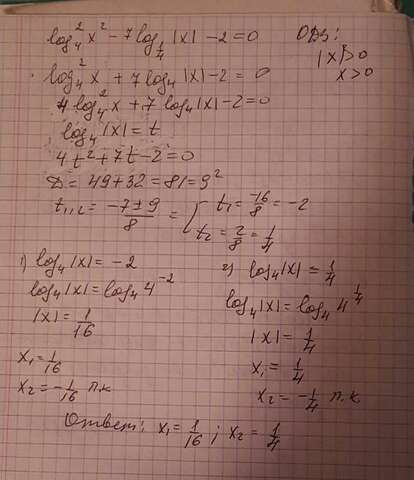 log₄² x² - 7 log_{1/4} |x| - 2 = 0
ОДЗ:
|x| > 0
x > 0
log₄² x + 7 log₄ |x| - 2 = 0
4 log₄² x + 7 log₄ |x| - 2 = 0
log₄ |x| = t
4t² + 7t - 2 = 0
D = 49 + 32 = 81 = 9²
t₁,₂ = (-7 ± 9)/8 = { t₁ = -16/8 = -2
t₂ = 2/8 = 1/4
1) log₄ |x| = -2
log₄ |x| = log₄ 4⁻²
|x| = 1/16
x₁ = 1/16
x₂ = -1/16 п.к
2) log₄ |x| = 1/4
log₄ |x| = log₄ 4^{1/4}
|x| = 1/4
x₁ = 1/4
x₂ = -1/4 п.к.
Ответ: x₁ = 1/16 ; x₂ = 1/4